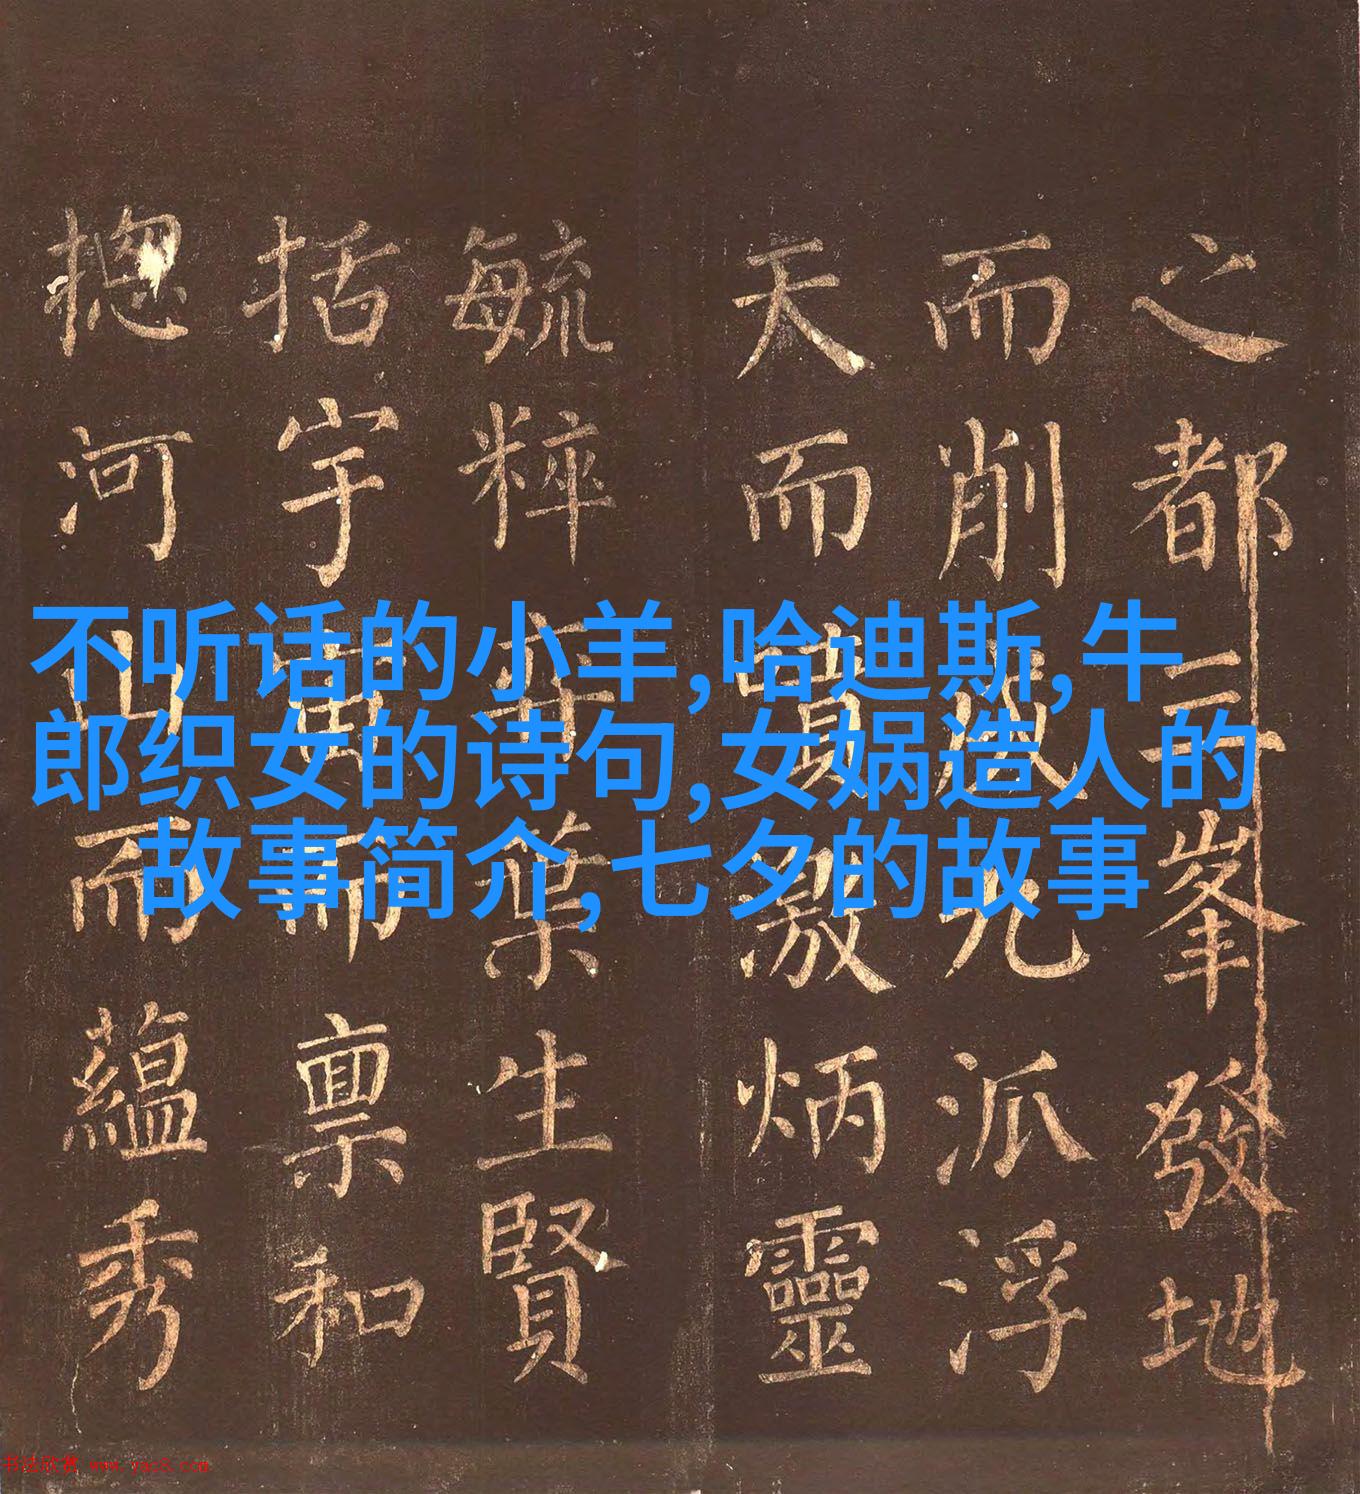 不听话的小羊,哈迪斯,牛
郎织女的诗句,女娲造人的
故事简介,七夕的故事
之都三峯發地
而削成九派浮
天而噴激炳靈
毓粹弈葉生賢
括宇宙而禀和
揔河山而藴秀
书法欣赏 www.yac8.com